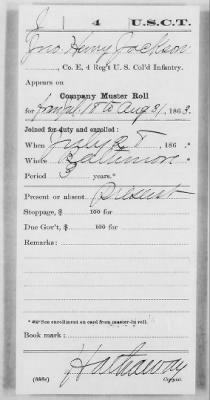 J 4 U.S.C.T.
Jno. Henry Jackson
, Co. E, 4 Reg't U. S. Col'd Infantry.
Appears on
Company Muster Roll
for 18 to Aug 31, 1863.
Joined for duty and enrolled:
When July 186 .*
Where Baltimore
Period 3 years.*
Present or absent Present
Stoppage, $ 100 for
Due Gov't, $ 100 for
Remarks:
* See enrollment on card from muster-in roll.
Book mark:
Hathaway
(358c) Copyist.